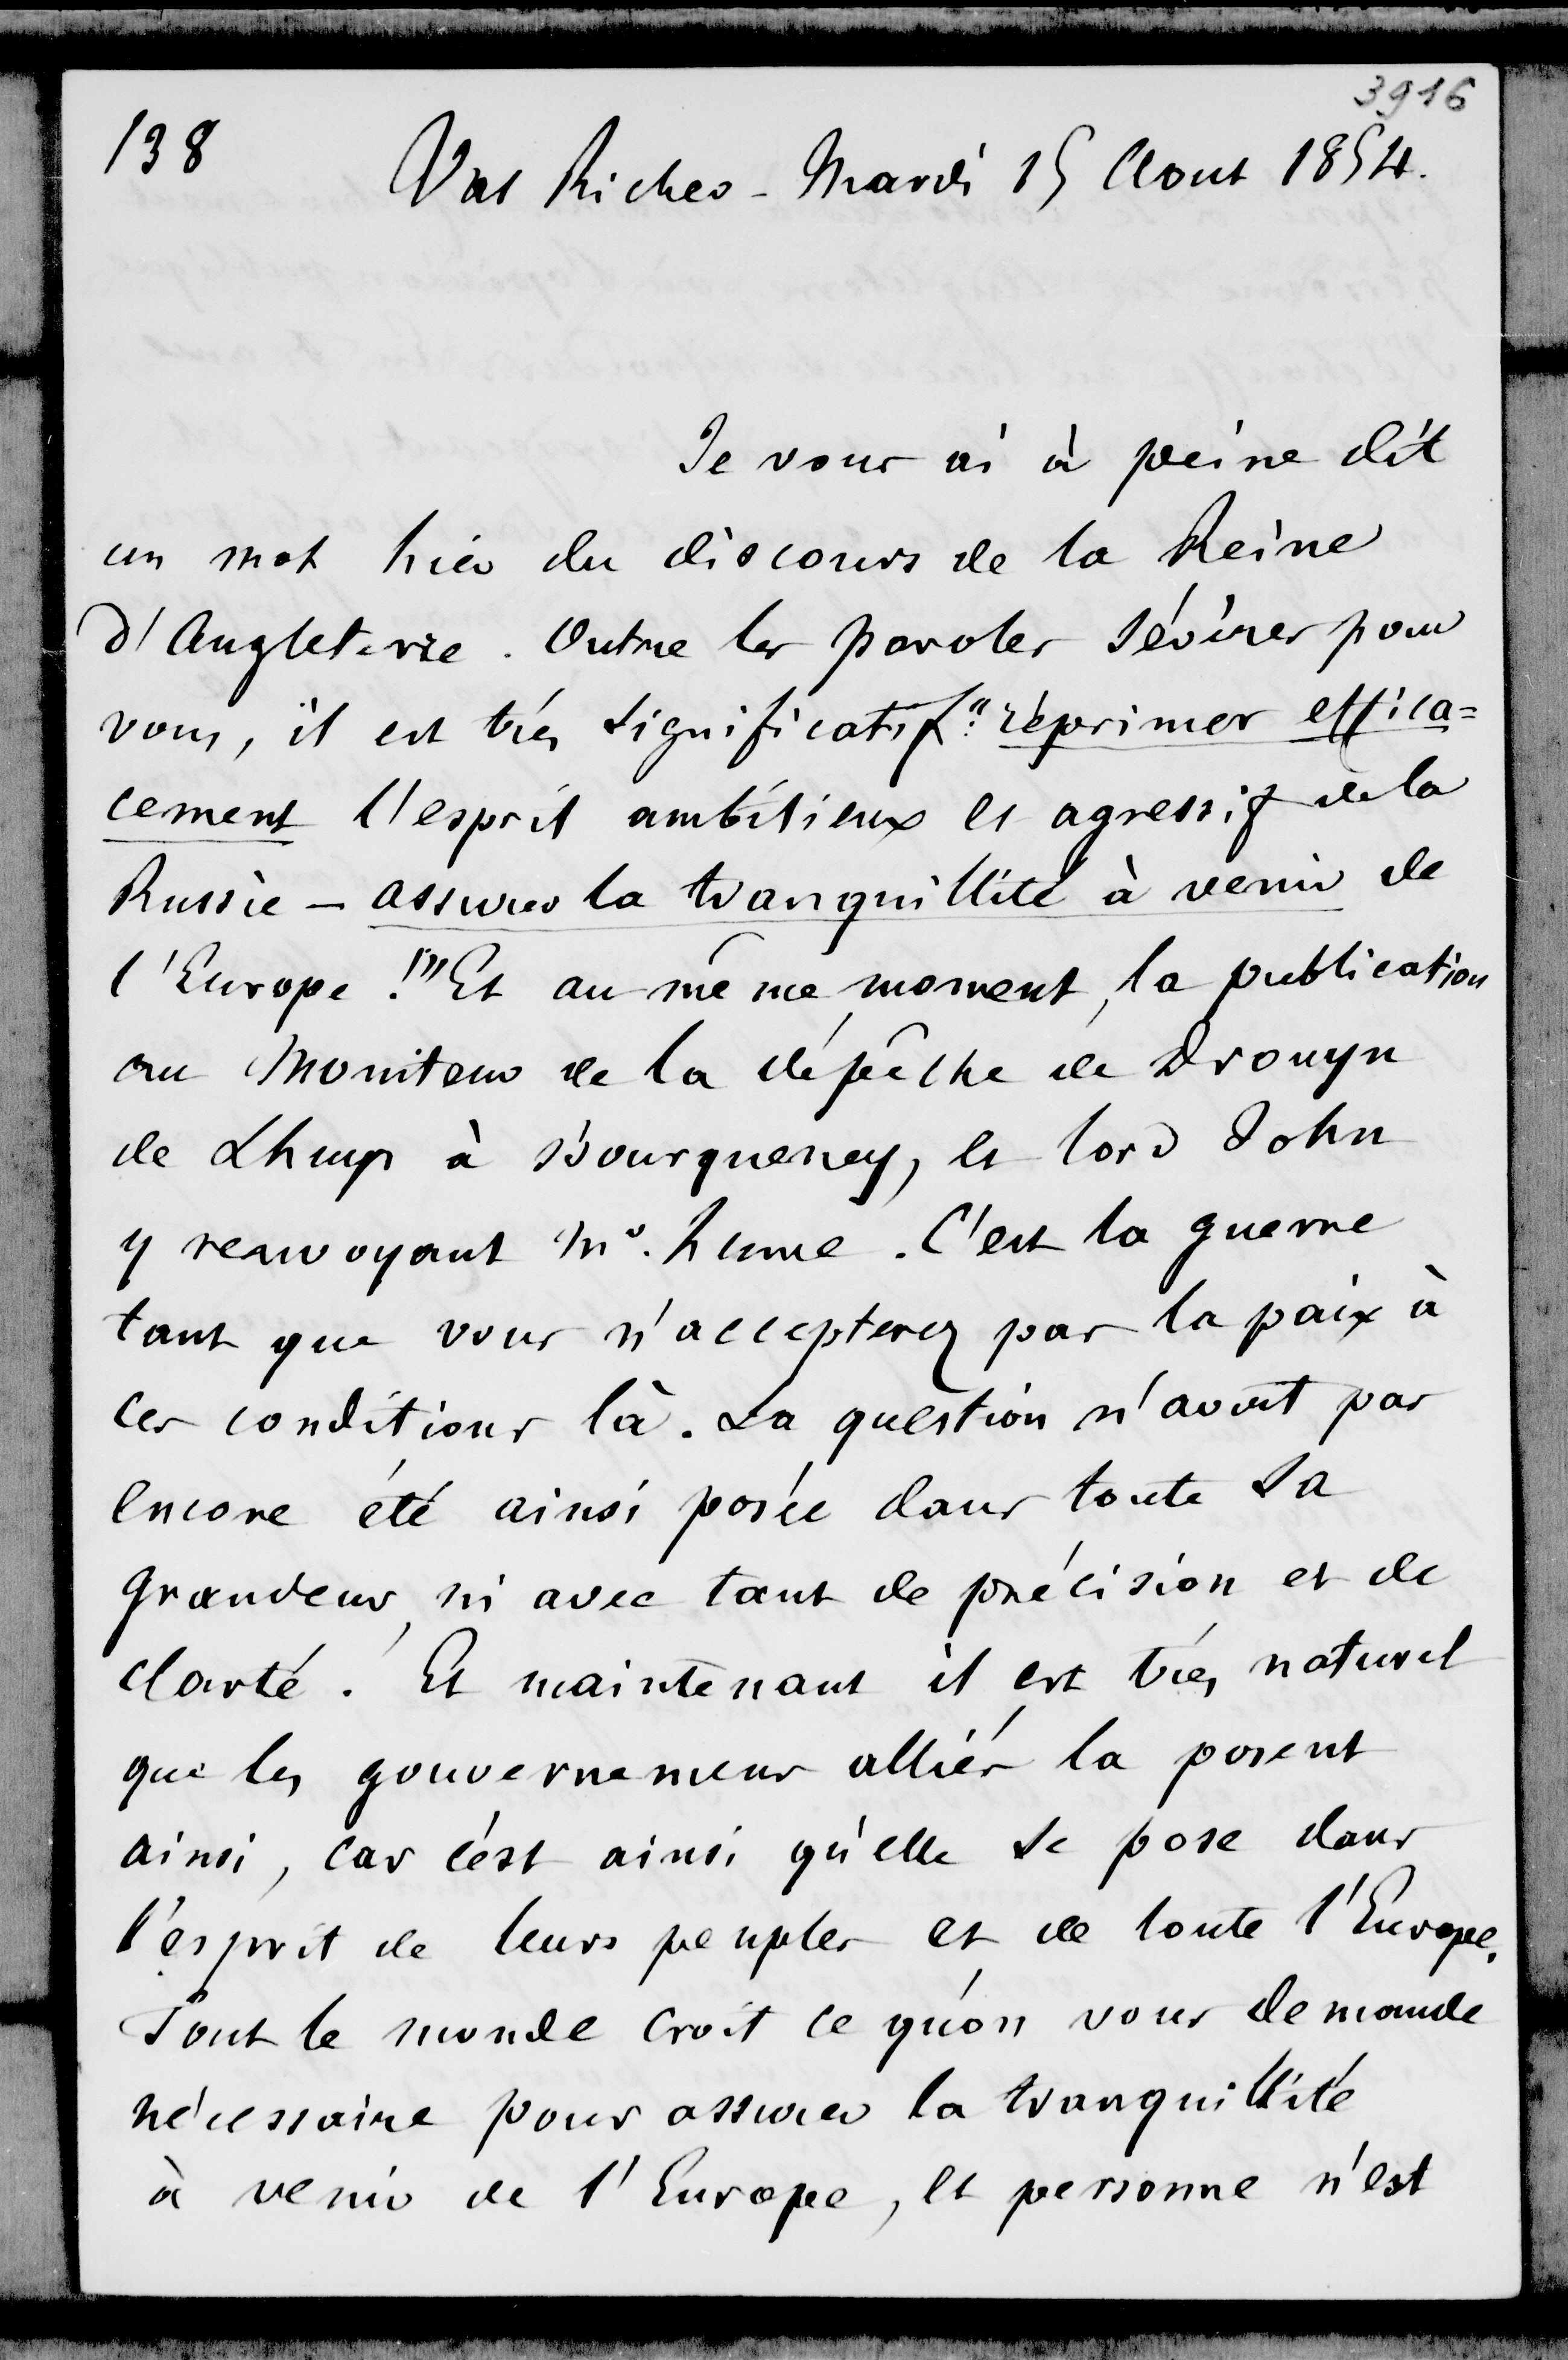 3916
138
Val Richer - Mardi 15 Aout 1854.
Je vous ai à peine dit
un mot hier du discours de la Reine
d'Angleterre. Outre les paroles sévères pour
vous, il est très significatif: "réprimer effica=
cement l'esprit ambitieux et agressif de la
Russie - assurer la tranquillité à venir de
l'Europe!" Et au même moment, la publication
au Moniteur de la dépêche de Drouyn
de Lhuys à Bourqueney, et lord John
y renvoyant Mr. Hume. C'est la guerre
tant que vous n'accepterez pas la paix à
ces conditions là. La question n'avait pas
encore été ainsi posée dans toute sa
grandeur, ni avec tant de précision et de
clarté. Et maintenant il est très naturel
que les gouvernemens alliés la posent
ainsi, car c'est ainsi qu'elle se pose dans
l'esprit de leurs peuples et de toute l'Europe.
Tout le monde croit ce qu'on vous demande
nécessaire pour assurer la tranquillité
à venir de l'Europe, et personne n'est